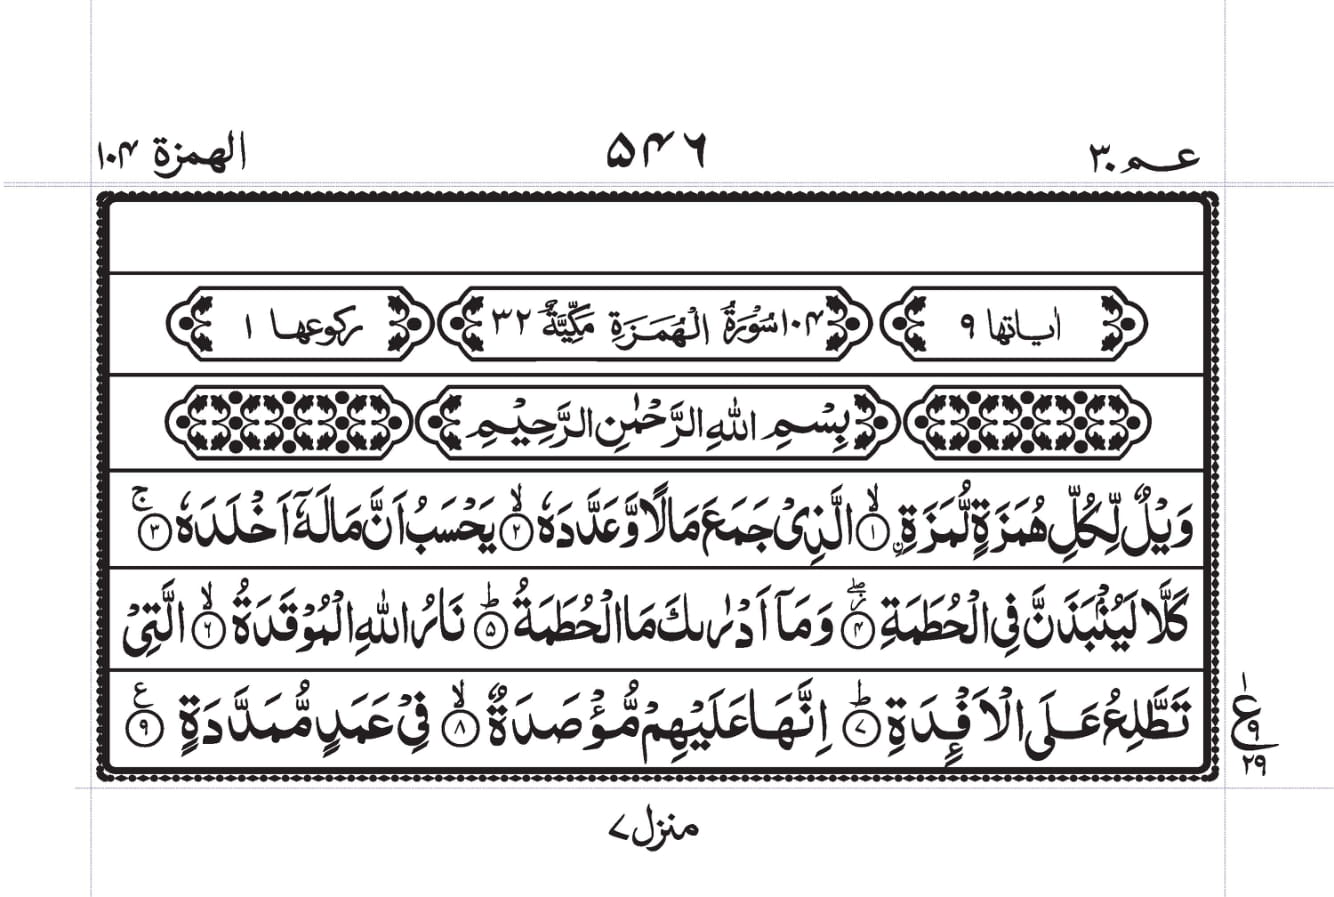 عـم ٣٠ ۵۴۶ الهمزة ۱۰۴
اٰیاتها ٩ ۱۰۴ سُوْرَةُ الْهُمَزَةِ مَكِّيَّةٌ ٣٢ ركوعها ١
بِسْمِ اللهِ الرَّحْمٰنِ الرَّحِيْمِ
وَيْلٌ لِّكُلِّ هُمَزَةٍ لُّمَزَةِ ۙ﴿۱﴾ ۨالَّذِىْ جَمَعَ مَالًا وَّعَدَّدَهٗ ۙ﴿۲﴾ يَحْسَبُ اَنَّ مَالَهٗۤ اَخْلَدَهٗ ۚ﴿۳﴾
كَلَّا لَيُنْۢبَذَنَّ فِى الْحُطَمَةِ ﴿۴﴾ۖز وَمَاۤ اَدْرٰىكَ مَا الْحُطَمَةُ ؕ﴿۵﴾ نَارُ اللهِ الْمُوْقَدَةُ ۙ﴿۶﴾ الَّتِىْ
تَطَّلِعُ عَلَى الْاَفْـِٕدَةِ ؕ﴿۷﴾ اِنَّهَا عَلَيْهِمْ مُّؤْصَدَةٌ ۙ﴿۸﴾ فِىْ عَمَدٍ مُّمَدَّدَةٍ ﴿۹﴾ع
ع ۱ ۹ ۲۹
منزل ۷